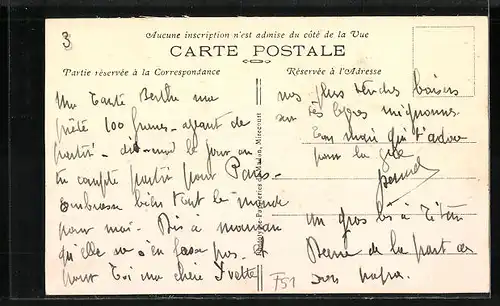 3
Aucune inscription n'est admise du côté de la Vue
CARTE POSTALE
Partie réservée à la Correspondance
Ma Tante Berthe m'a
prêté 100 francs - avant de
partir - dis-moi le jour où
tu comptes partir pour Paris -
Embrasse bien tout le monde
pour moi. Dis à maman
qu'elle ne s'en fasse pas - et
pour toi ma chère Yvette
Réservée à l'Adresse
mes plus tendres baisers
sur tes lèvres mignonnes.
Ton mari qui t'adore
pour la vie
Un gros bi à
de la part de
son papa.
F51